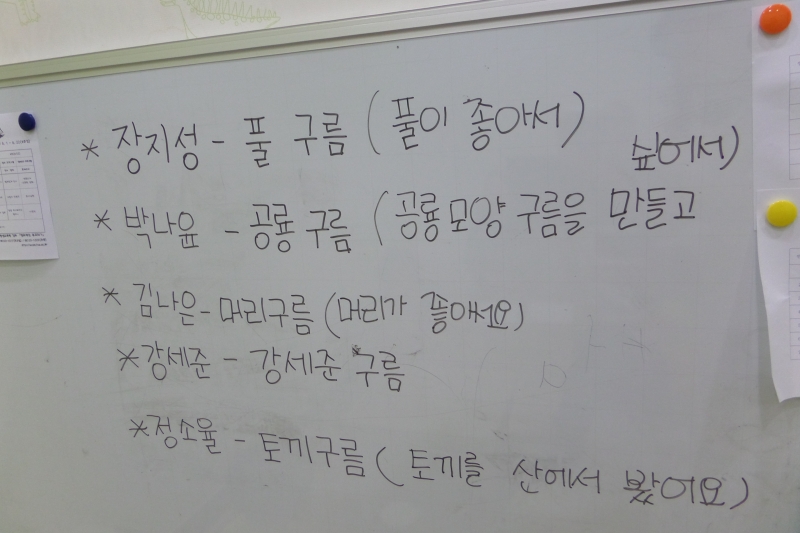 * 장지성 - 풀 구름 (풀이 좋아서)
* 박나윤 - 공룡 구름 (공룡모양 구름을 만들고
싶어서)
* 김나은 - 머리구름 (머리가 좋아서요)
* 강세준 - 강세준 구름
* 정소율 - 토끼구름 (토끼를 산에서 봤어요)